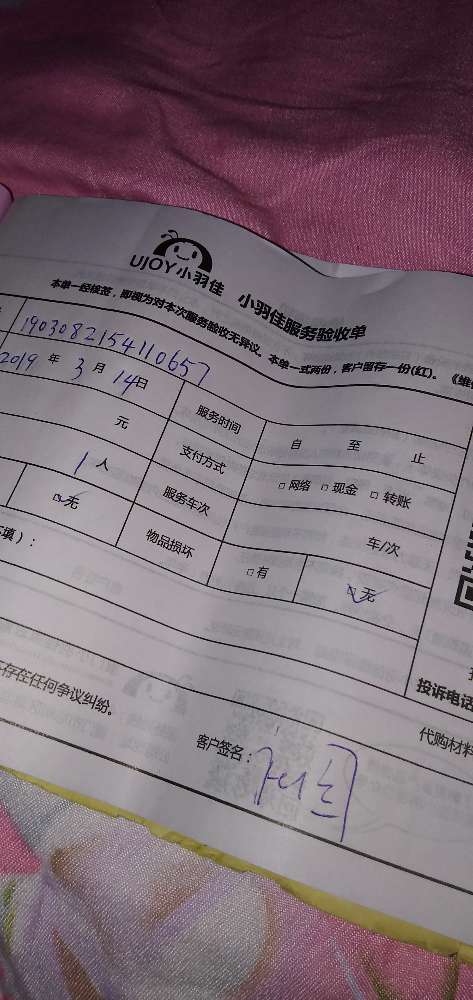 UJOY小羽佳 小羽佳服务验收单
本单一经核签，即视为对本次服务验收无异议。本单一式两份，客户留存一份(红)。《维
1903082154110657
2019 年 3 月 14日 服务时间 自 至 止
元 支付方式 □ 网络 □ 现金 □ 转账
1 人 服务车次 车/次
□无 物品损坏 □有 □无
填)：
投诉电话
存在任何争议纠纷。 代购材料
客户签名：